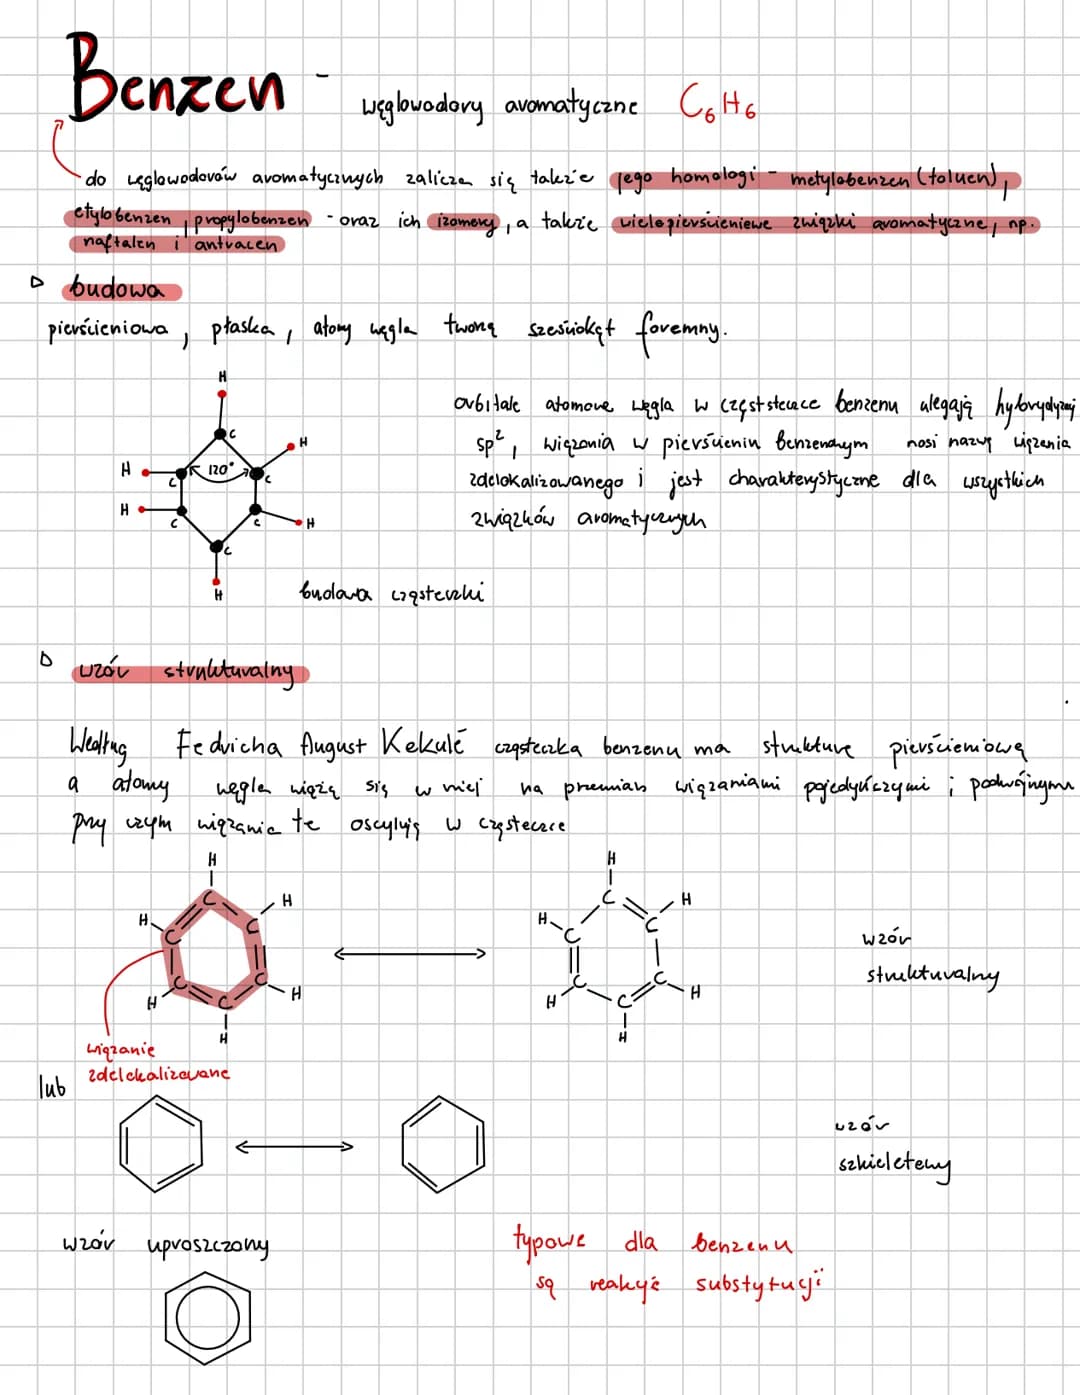 Benzen - węglowodory aromatyczne C₆H₆
do węglowodorów aromatycznych zalicza się także jego homologi - metylobenzen (toluen),
etylobenzen, propylobenzen - oraz ich izomery, a także wielopierścieniowe związki aromatyczne, np.
naftalen i antracen
budowa
pierścieniowa, płaska, atomy węgla tworzą sześciokąt foremny.
orbitale atomowe węgla w cząsteczce benzenu ulegają hybrydyzacji
sp², wiązania w pierścieniu benzenowym nosi nazwę wiązania
zdelokalizowanego i jest charakterystyczne dla wszystkich
związków aromatycznych
H
C
H
H
C
120°
C
H
C
C
H
C
H
budowa cząsteczki
wzór strukturalny
Według Fedricha August Kekulé cząsteczka benzenu ma strukturę pierścieniową
a atomy węgla wiążą się w niej na przemian wiązaniami pojedyńczymi i podwójnymi
przy czym wiązania te oscylują w cząsteczce
H
C
H
H
C
C
C
C
H
C
H
H
H
C
H
H
C
C
C
C
H
C
H
H
wzór
strukturalny
wiązanie
zdelokalizowane
lub
wzór
szkieletowy
wzór uproszczony
typowe dla benzenu
są reakcje substytucji